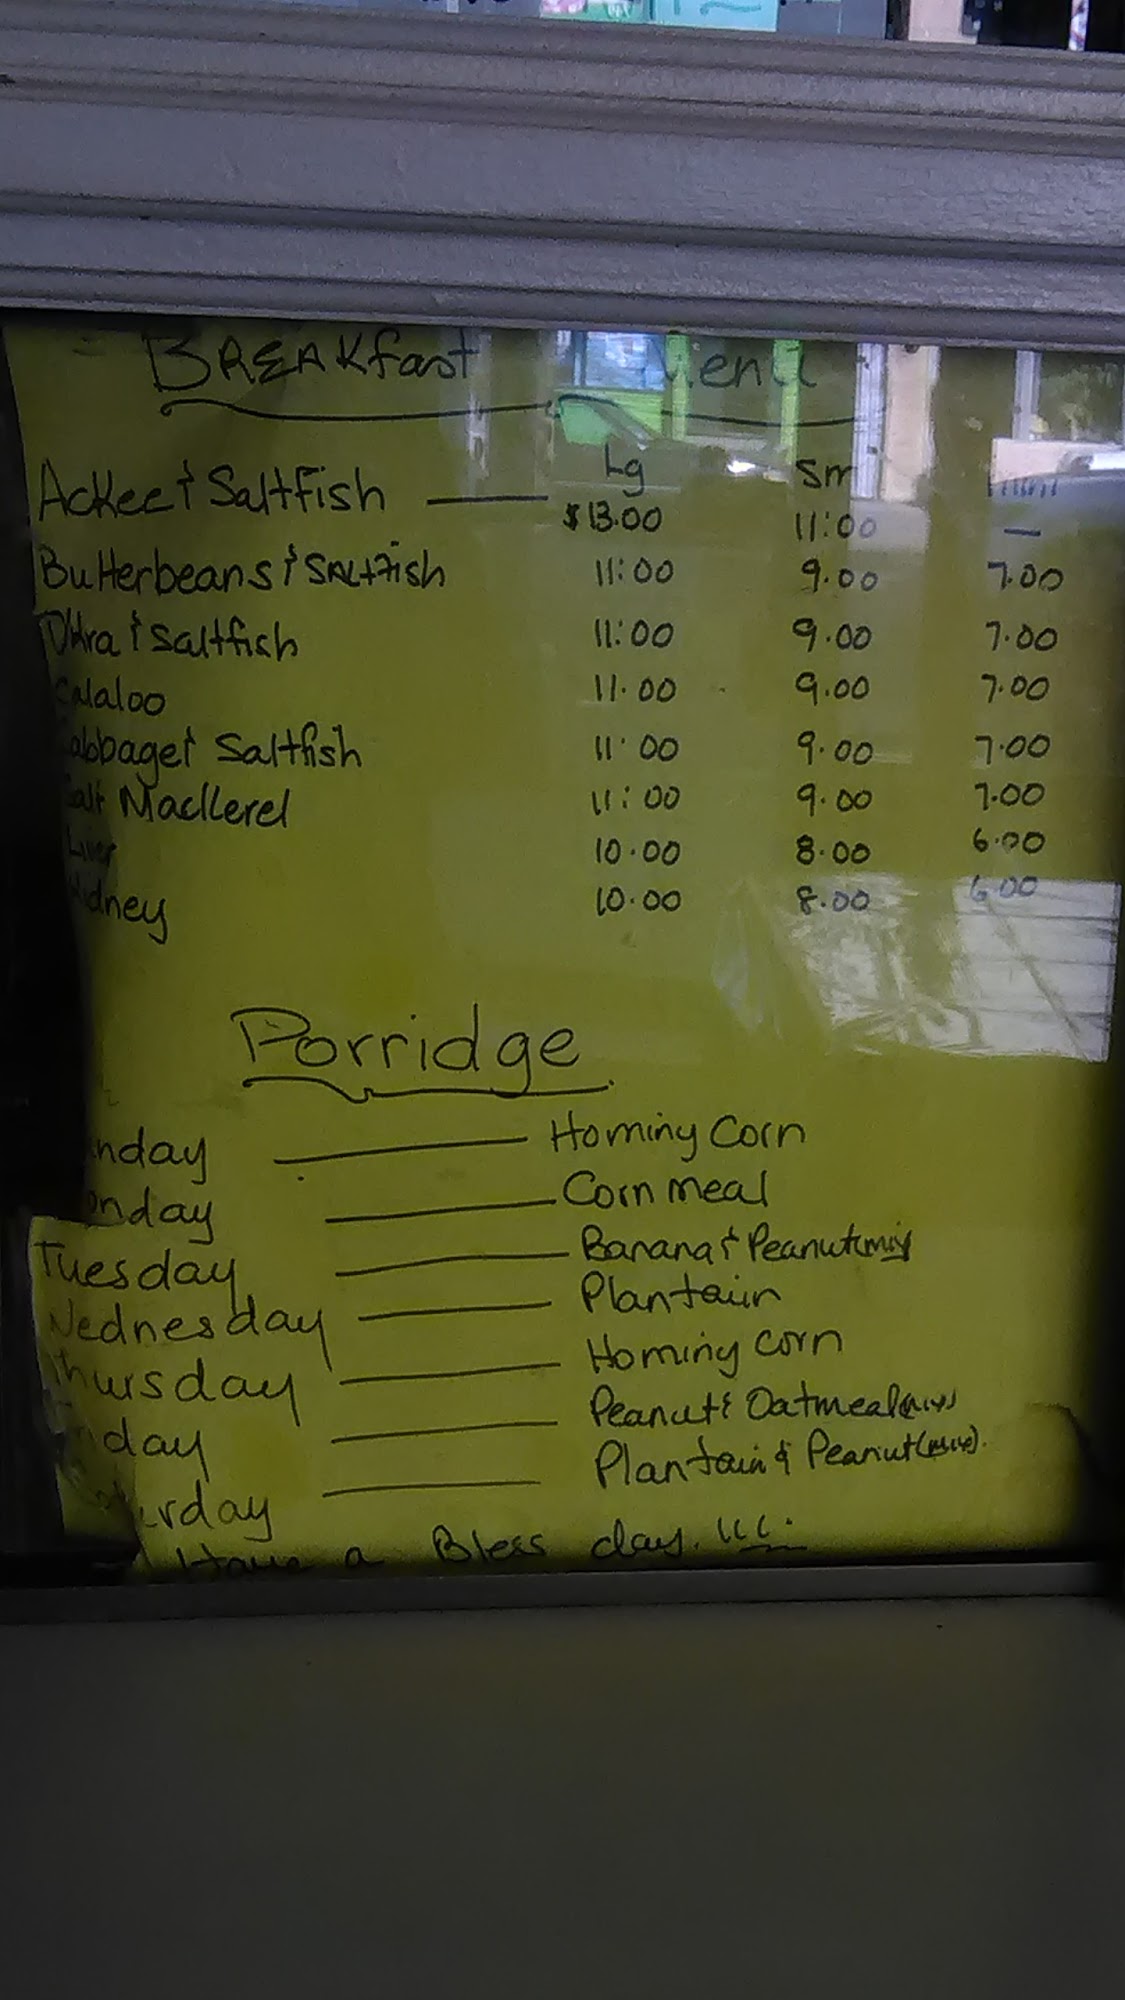 BREAKfast Menu
Lg Sm Mini
Ackee & Saltfish $13.00 11:00 —
Butterbeans & SALtFish 11:00 9.00 7.00
Okra & Saltfish 11:00 9.00 7.00
Calaloo 11.00 9.00 7.00
Cabbage & Saltfish 11.00 9.00 7.00
Salt Mackerel 11:00 9.00 7.00
Liver 10.00 8.00 6.00
Kidney 10.00 8.00 6.00
Porridge
nday Hominy Corn
onday Corn meal
Tuesday Banana & Peanut (mix)
Wednesday Plantain
Thursday Hominy corn
day Peanut & Oatmeal (mix)
urday Plantain & Peanut (mix).
Have a Bless day.